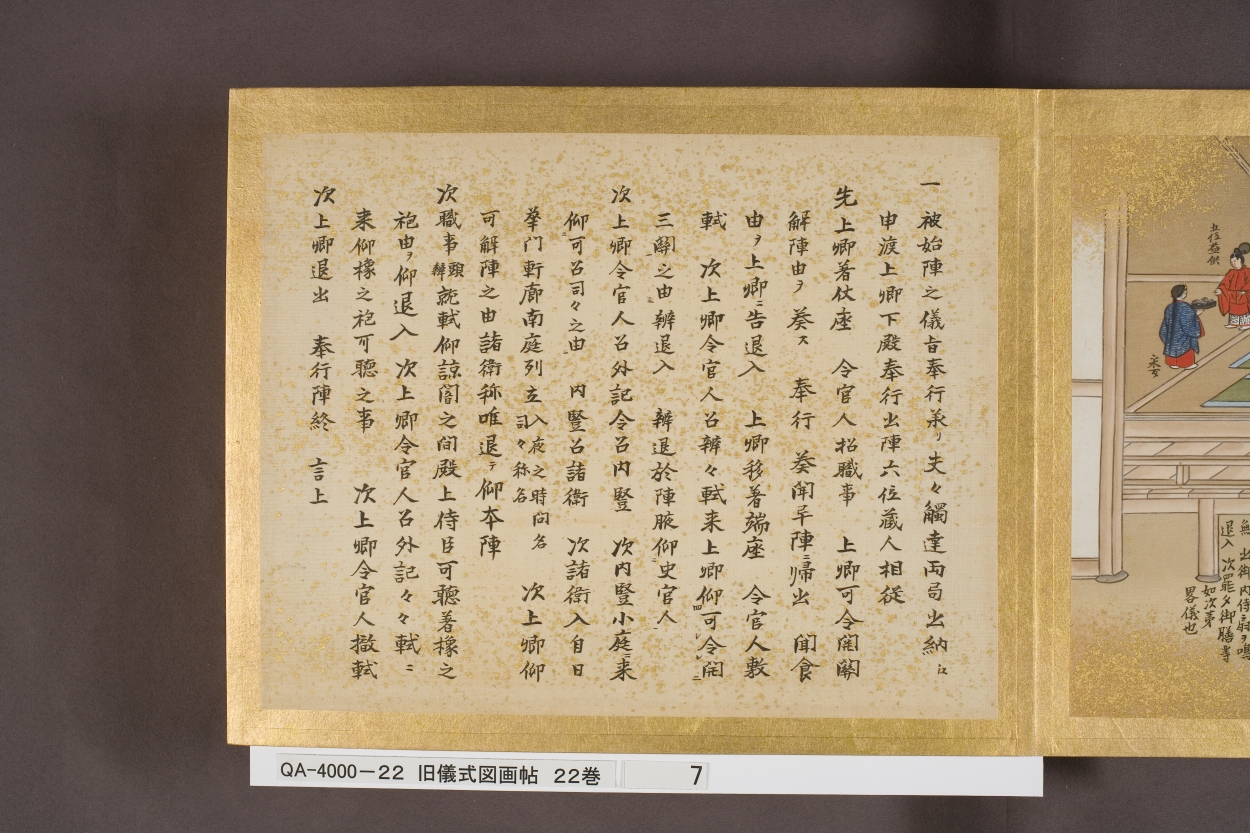 一被始陣之儀旨奉行承リ夫々觸達両局出納江
申渡上卿下殿奉行出陣六位蔵人相従
先上卿著仗座　令官人招職事　上卿可令開關
解陣由ヲ葵ス　奉行　葵聞畢陣ニ帰出　聞食
由ヲ上卿ニ告退入　上卿移著端座　令官人敷
軾　次上卿令官人召辨々軾来上卿仰可令開
三關之由辨退入　辨退於陣腋仰史官人
次上卿令官人召外記令召内豎　次内豎小庭ニ来
仰可召司々之由　内豎召諸衛　次諸衛入自日
華門軒廊南庭列立入夜之時問名司々称名　次上卿仰
可解陣之由諸衛称唯退テ仰本陣
次職事頭辨就軾仰諒闇之間殿上侍臣可聴著橡之
袍由ヲ仰退入　次上卿令官人召外記々々軾ニ
来仰橡之袍可聴之事　次上卿令官人撤軾
次上卿退出　奉行陣終　言上
五位益供
采女
出御内侍
退入　次罷夕御膳等
如次第
畧儀也
QA-4000-22 旧儀式図画帖 22巻 7